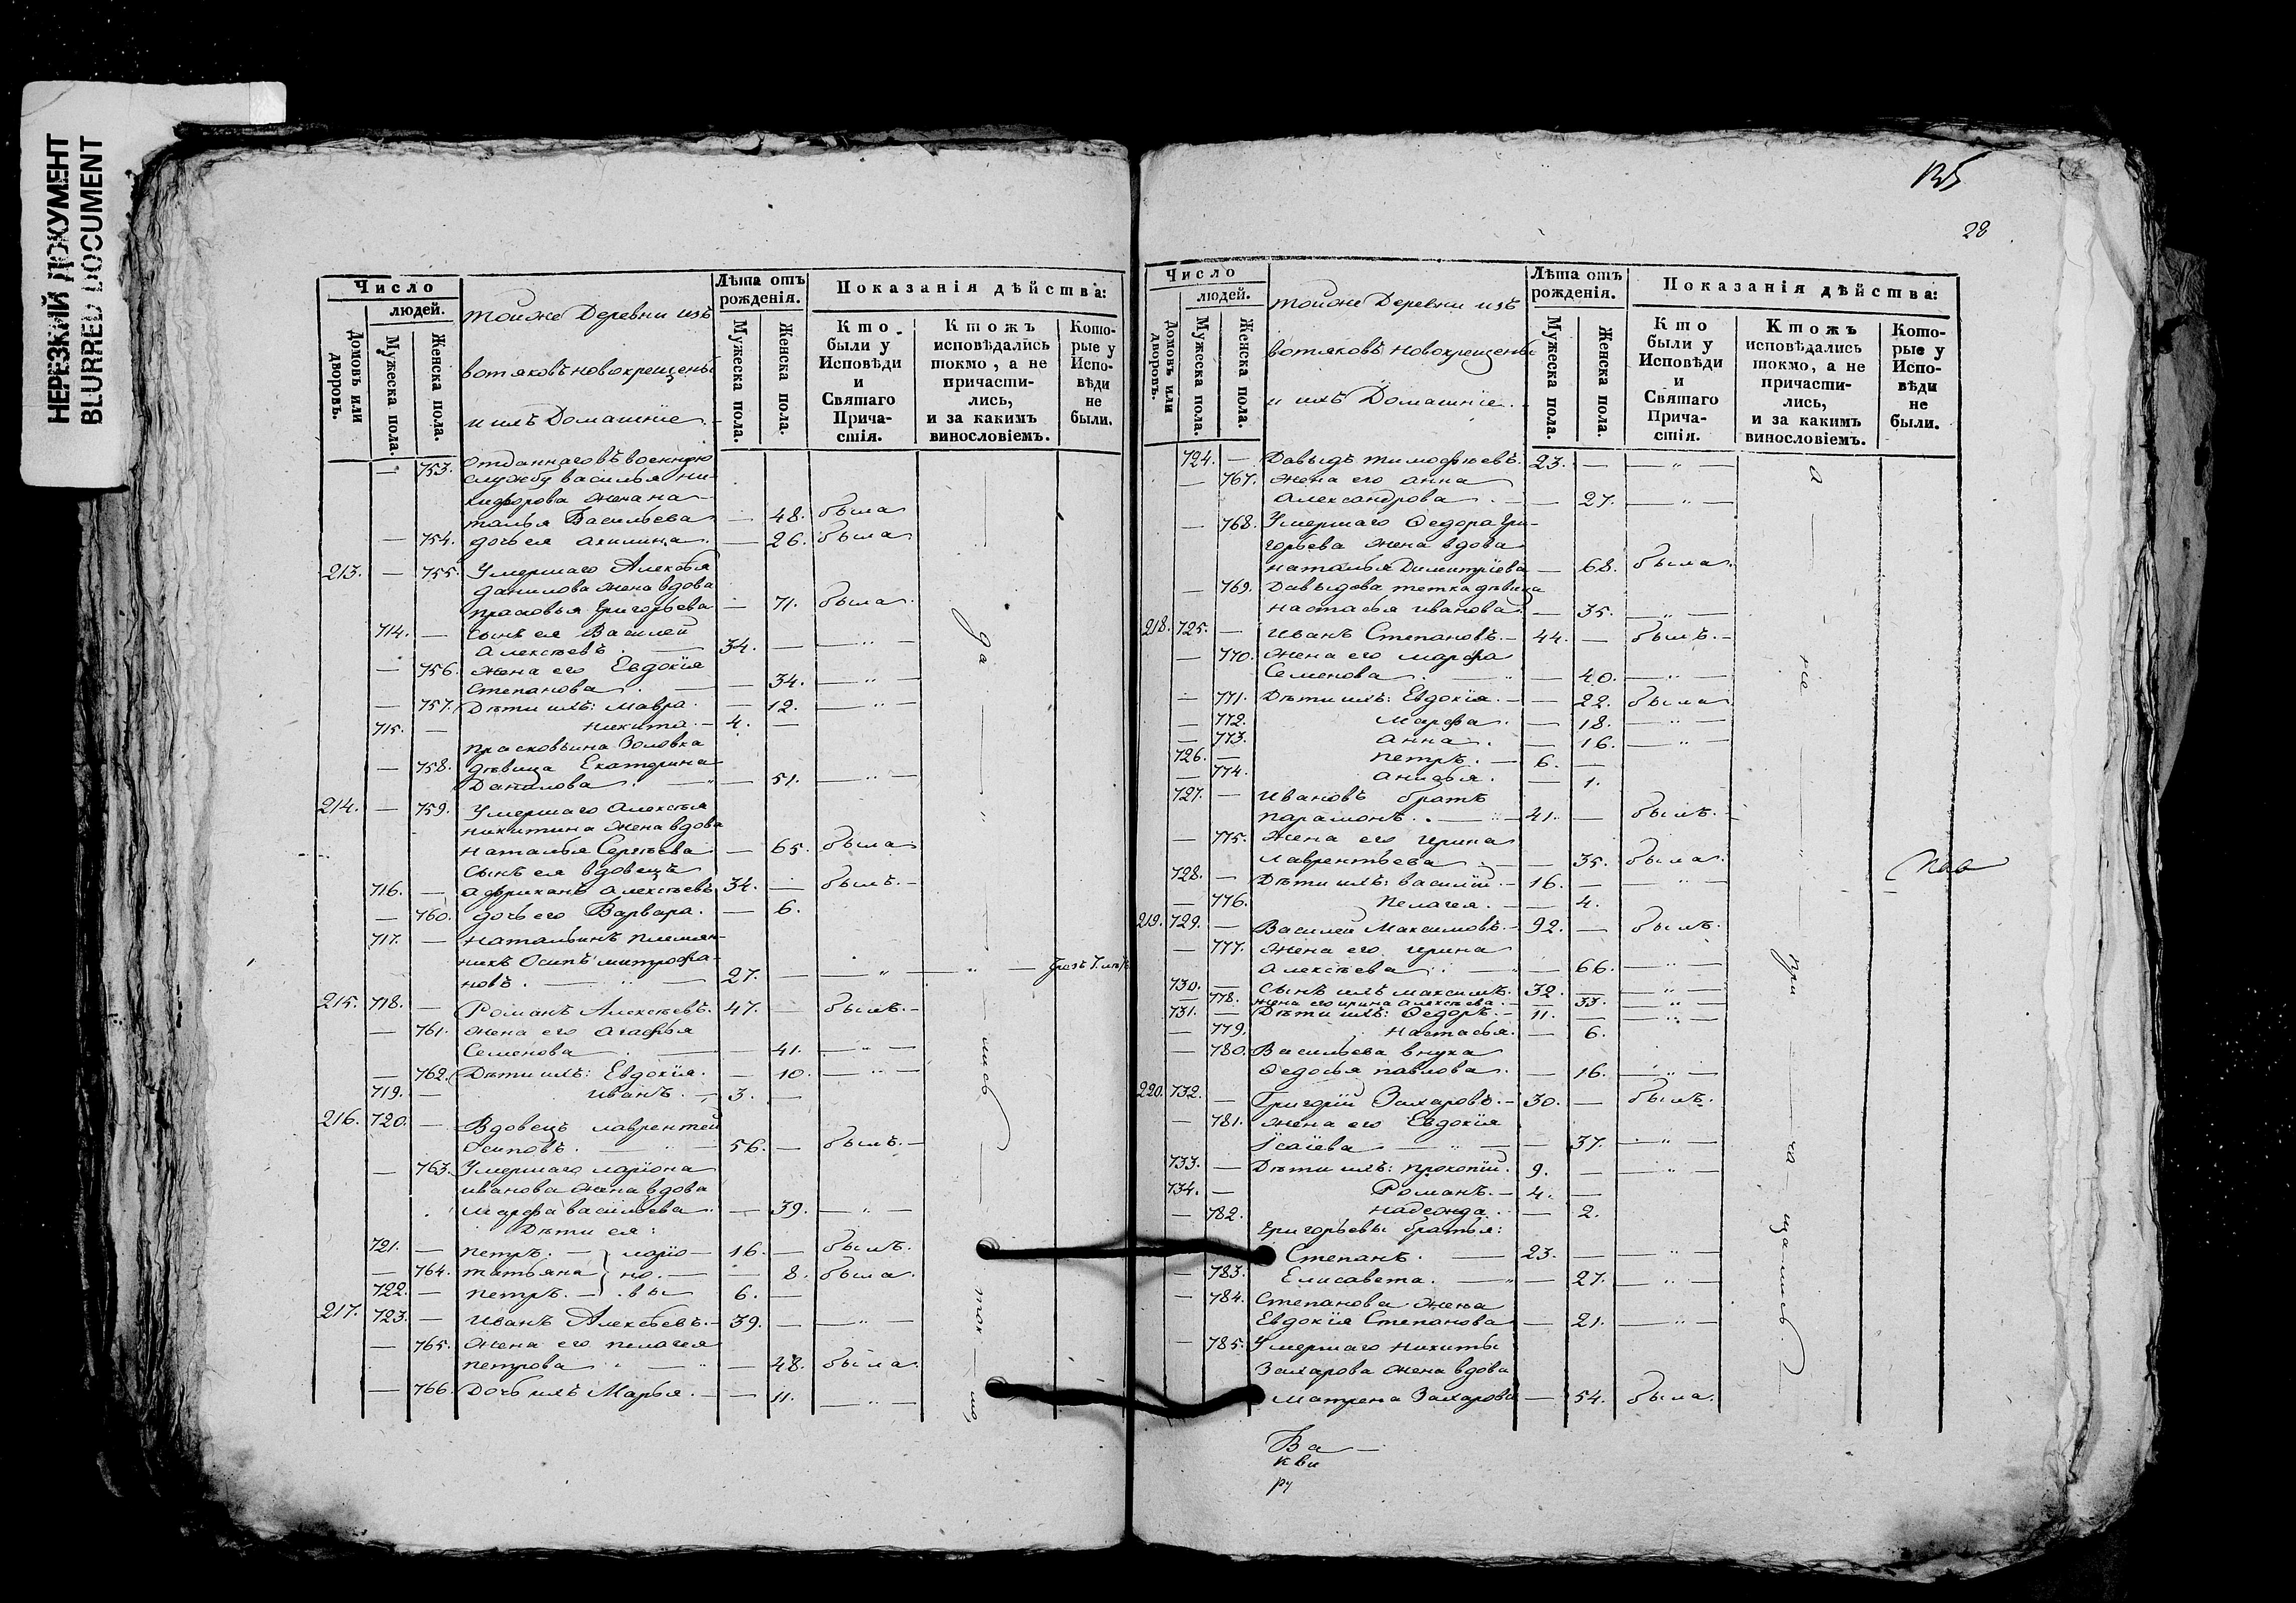 НЕРЕЗКИЙ ДОКУМЕНТ
BLURRED DOCUMENT
28
Число
людей.
Домовъ или дворовъ.
Мужеска пола.
Женска пола.
тойже Деревни изъ
вотяковъ новокрещены
и ихъ Домашніе.
Лѣта отъ рожденія.
Мужеска пола.
Женска пола.
Показанія дѣйства:
Кто были у Исповѣди и Святаго Причастія.
Ктожъ исповѣдались токмо, а не причастились, и за какимъ винословіемъ.
Которые у Исповѣди не были.
— 753. Отданнаго въ военную
службу василья ни-
кифорова жена на-
талья Васильева — 48. была
— 754. дочь ея акилина. — 26. была
213. — 755. Умершаго Алексѣя
данилова жена вдова
прасковья Григорьева — 71. была
714. — сынъ ея Василей
Алексѣевъ. 34. — — „ —
— 756. жена его Евдокія
Степанова. — 34. — „ —
— 757. Дѣти ихъ: мавра. — 12. — „ —
715. — никита. — 4. —
прасковьина Золовка
— 758. дѣвица Екатерина
Данилова. — 51. — „ —
214. — 759. Умершаго алексѣя
никитина жена вдова
наталья Сергѣева — 65. была
Сынъ ея вдовецъ
716. — адриханъ алексѣевъ 34. — былъ. —
— 760. дочь его Варвара. — 6.
717. — натальинъ племян-
никъ Осипъ митрофа-
новъ. — „ — 27. — — „ — „ —
215. 718. — Романъ Алексѣевъ. 47. — былъ. —
— 761. жена его агафья
Семенова — 41. — „ —
— 762. Дѣти ихъ: Евдокія. — 10. — „ —
719. — иванъ. — 3. —
216. 720. — Вдовецъ лаврентей
Осиповъ. — 56. — былъ. —
— 763. Умершаго ларіона
иванова жена вдова
марфа васильева. — 39. — „ —
Дѣти ея:
721. — петръ. — ларіо- 16. — былъ.
— 764. татьяна но. — — 8. была.
722. — петръ. — .вы 6. —
217. 723. — иванъ Алексѣевъ. — 39. — — „ —
— 765. жена его пелагея
петрова — 48. была.
— 766. Дочь ихъ Марья. — — 11. — „ —
да
лись
ток
мо
Число
людей.
Домовъ или дворовъ.
Мужеска пола.
Женска пола.
тойже Деревни изъ
вотяковъ новокрещены
и ихъ Домашніе.
Лѣта отъ рожденія.
Мужеска пола.
Женска пола.
Показанія дѣйства:
Кто были у Исповѣди и Святаго Причастія.
Ктожъ исповѣдались токмо, а не причастились, и за какимъ винословіемъ.
Которые у Исповѣди не были.
724. — Давыдъ тимофѣевъ. 23. — — „ —
— 767. жена его анна
александрова. — 27. — „ —
— 768. Умершаго Ѳедора гри-
горьева жена вдова
наталья Димитріева — 68. была.
— 769. Давыдова тетка дѣвица
настасья иванова. — 35. — „ —
218. 725. — иванъ Степановъ. — 44. — былъ. —
— 770. жена его марфа
Семенова — 40. — „ —
— 771. Дѣти ихъ: Евдокія. — — 22. была
— 772. Марфа. — 18. — „ —
— 773. анна. — 16. — „ —
726. — петръ. — 6. —
— 774. анисья. — 1.
727. — ивановъ братъ
парамонъ. — „ — 41. — былъ. —
— 775. жена его ирина
лаврентьева — 35. была.
728. — Дѣти ихъ: василій. — 16. — — „ —
— 776. пелагея. — — 4.
219. 729. — Василей Максимовъ. — 92. — былъ.
— 777. жена его ирина
алексѣева — 66. — „ —
730. — Сынъ ихъ максимъ. 32. — — „ —
— 778. жена его ирина алексѣева. — 33. — „ —
731. — Дѣти ихъ: Ѳедоръ. — 11. — — „ —
— 779. настасья. — 6.
— 780. Васильева внука
Ѳедосья павлова. — 16. — „ —
220. 732. — Григорій Захаровъ. — 30. — былъ.
— 781. жена его Евдокія
Ісаіева — „ — — 37. — „ —
733. — Дѣти ихъ: прокопій. 9. — — „ —
734. — Романъ. — 4. —
— 782. надежда. — 2.
григорьевы братья:
Степанъ. — 23. — — „ —
— 783. Елисавета. — „ — 27. — „ —
— 784. Степанова жена
Евдокія Степанова — 21. — „ —
— 785. Умершаго никиты
Захарова жена вдова
матрена Захарова — 54. была.
а
не
при
ча
щались.
Ва
кви
ру